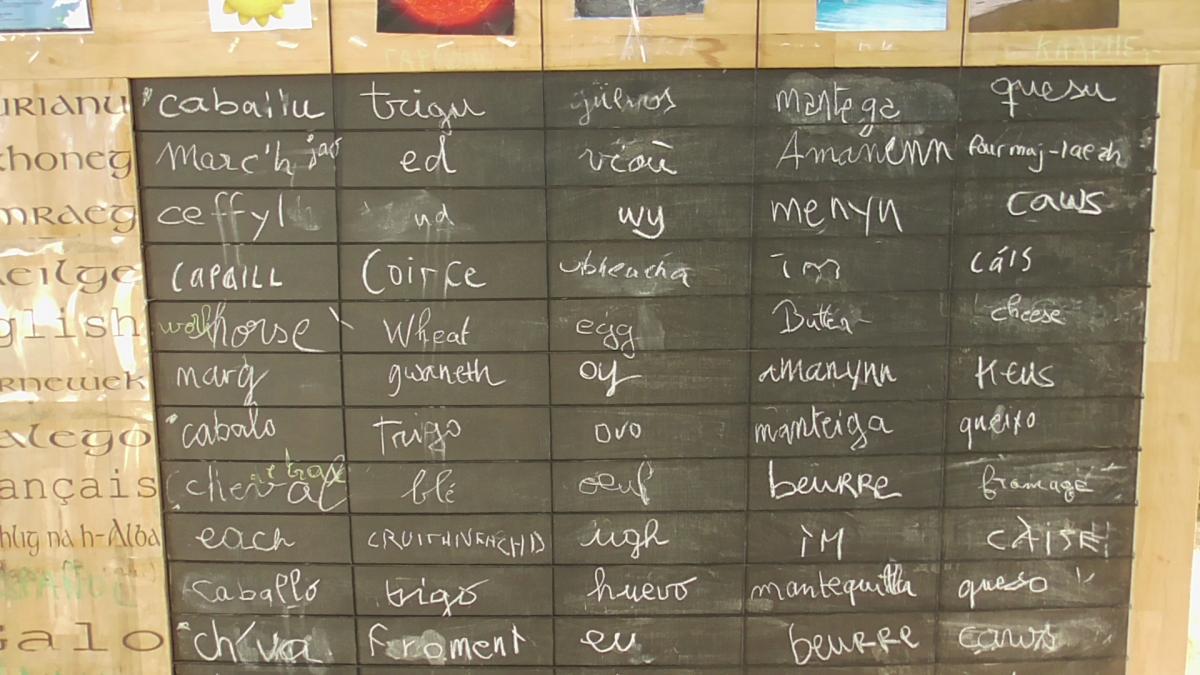 KAAPME
urianu cabailu trigu güevos mantega quesu
zhoneg Marc'h ed vioù Amanenn fourmaj-laezh
mraeg ceffyl wy menyn caws
eilge CAPAILL Coirce ubheacha im cáis
glish work horse Wheat egg Butter cheese
rnewek marg gwaneth oy amanynn keus
alego cabalo Trigo ovo manteiga queixo
ançais cheval blé oeuf beurre fromage
hlig na h-Alba each CRUITHNEACHD ugh ìM CÀISE
SPAÑOL caballo trigo huevo mantequilla queso
Galo ch'va froment eu beurre caws